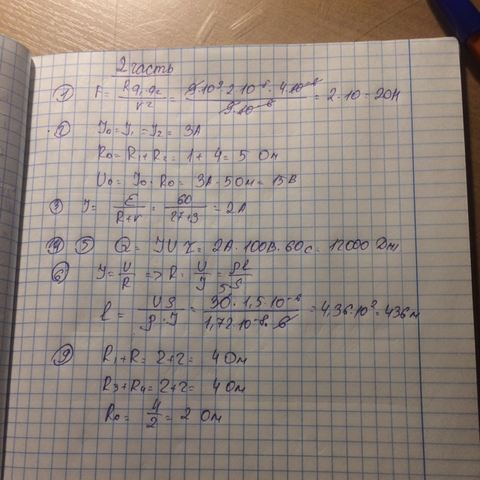 2 часть
① F = Rq₁·q₂/r² = 9·10⁹·2·10⁻⁸·4·10⁻⁸/9·10⁻⁸ = 2·10 = 20Н
② J₀ = J₁ = J₂ = 3А
R₀ = R₁ + R₂ = 1 + 4 = 5 Ом
U₀ = J₀·R₀ = 3А·5Ом = 15В
③ J = ε/R+r = 60/27+3 = 2А
⑤ Q = JUτ = 2А·100В·60с = 12000 Дж
⑥ J = U/R => R = U/J = ρl/S
l = US/ρ·J = 30·1,5·10⁻⁶/1,72·10⁻⁸·6 = 4,36·10² = 436м
⑨ R₁ + R = 2+2 = 4Ом
R₃ + R₄ = 2+2 = 4 Ом
R₀ = 4/2 = 2 Ом